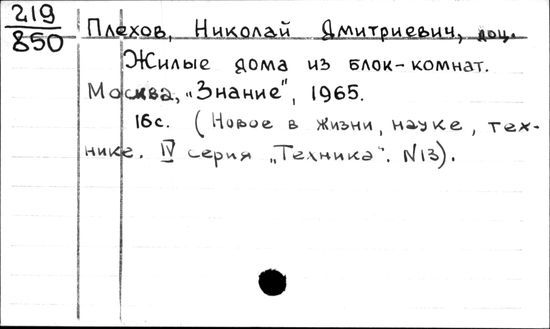 219
850
Плехов, Николай Дмитриевич, доц.
Жилые дома из блок-комнат.
Москва, „Знание", 1965.
16с. (Новое в жизни, науке, тех-
нике. IV серия „Техника". N13).